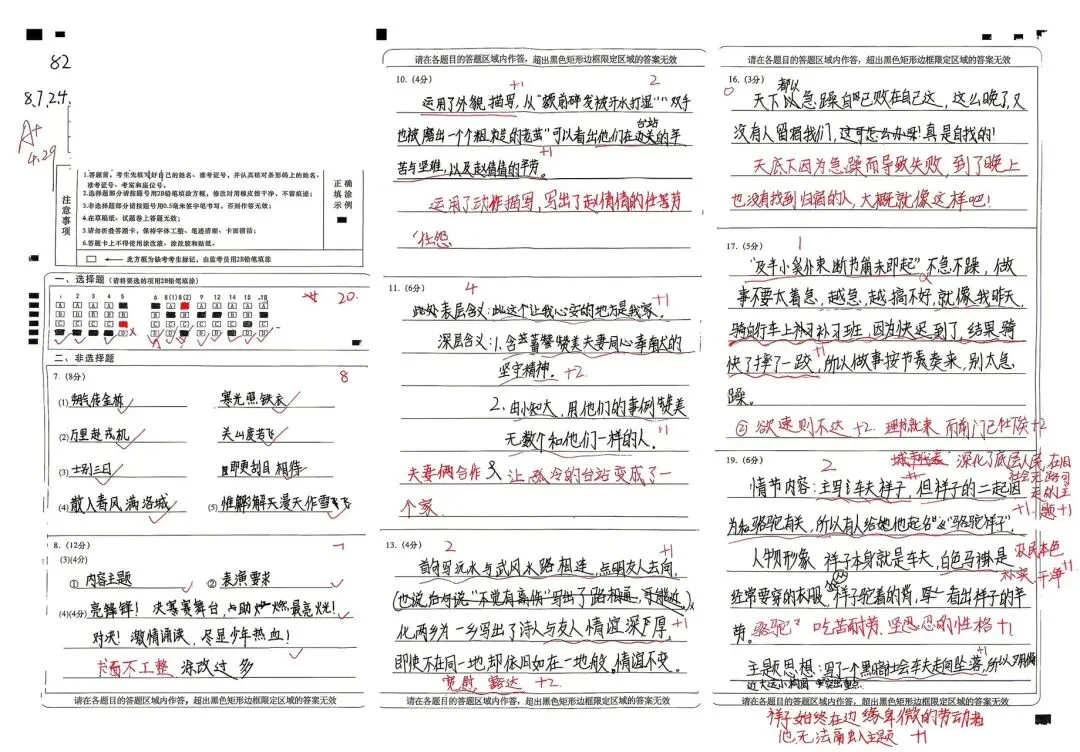 82
8.7.24.
A+
4.29
注意事项
1.答题前，考生先填写好自己的姓名、准考证号，并认真核对条形码上的姓名、准考证号、考室和座位号。
2.选择题部分请按题号用2B铅笔填涂方框，修改时用橡皮擦干净，不留痕迹；
3.非选择题部分请按题号用0.5毫米签字笔书写，否则作答无效；
4.在草稿纸、试题卷上答题无效；
5.请勿折叠答题卡，保持字体工整、笔迹清晰、卡面清洁；
6.答题卡上不得使用涂改液、涂改胶和贴纸。
正确填涂示例
此方框为缺考考生标记，由监考员用2B铅笔填涂
一、选择题（请将要选的项用2B铅笔填涂）
20.
二、非选择题
7. (8分)
8
(1) 朔气传金柝
寒光照铁衣
(2) 万里赴戎机
关山度若飞
(3) 士别三日
即更刮目相待
(4) 散入春风满洛城
(5) 惟解漫天作雪飞
8. (12分)
(3)(4分)
① 内容主题
② 表演要求
(4)(4分)
决赛舞台
对决！激情诵读，尽显少年热血！
书面不工整 涂改过多
请在各题目的答题区域内作答，超出黑色矩形边框限定区域的答案无效
请在各题目的答题区域内作答，超出黑色矩形边框限定区域的答案无效
10. (4分)
+1
2
运用了外貌描写，从“额前碎发被汗水打湿”“双手
台站
也被磨出一个个粗糙的茧”可以看出他们在边关的辛
苦与坚难，以及赵倩倩的辛劳。
+1
运用了动作描写，写出了赵倩倩的任劳
任怨
11. (6分)
4
此处表层含义：此这个让我心安的地方是我家。
+1
深层含义：1、含蓄赞美夫妻同心奉献的
坚守精神。+2
2、由小知大，用他们的事例赞美
无数个和他们一样的人。
+1
夫妻俩合作 让孤冷的台站变成了一
个家
13. (4分)
2
首句写沅水与武冈水路相连，点明友人去向，
+1
(也说后句说“不觉有离伤”写出了路相通，可接近。)
化两乡为一乡写出了诗人与友人情谊深厚，
+1
即使不在同一地，却依旧如在一地般。情谊不变。
宽慰 豁达 +2
请在各题目的答题区域内作答，超出黑色矩形边框限定区域的答案无效
请在各题目的答题区域内作答，超出黑色矩形边框限定区域的答案无效
16. (3分)
0
都以
天下以急躁自己败在自己这，这么晚了，又
没有人留宿我们，这可怎么办呀！真是自找的！
天底下因为急躁而导致失败，到了晚上
也没有找到归宿的人，大概就像这样吧！
17. (5分)
1
“及半小奚仆束断书崩未即起”不急不躁，做
事不要太着急，越急，越搞不好，就像我昨天，
骑自行车上补习班，因为快迟到了，结果骑
快了摔了一跤，所以做事按节奏来，别太急
+1
躁。
② 欲速则不达 +2 理书就束 而前门已牡下矣 +2
19. (6分)
2
深化了底层人民在旧
社会无路可
走的主
题 +1
情节内容：主写车夫祥子，但祥子的二起因
为和骆驼有关，所以有人给他起名“骆驼祥子”
人物形象 祥子本身就是车夫，白色马褂是
农民本色
朴实、干净
+1
经常要穿的衣服，祥子驼着的背，看出祥子的辛
劳。“骆驼” 吃苦耐劳、坚忍的性格 +1
主题思想：写了一个黑暗社会车夫走向坠落，所以
+1
请在各题目的答题区域内作答，超出黑色矩形边框限定区域的答案无效
祥子始终在边缘卑微的劳动者
+1